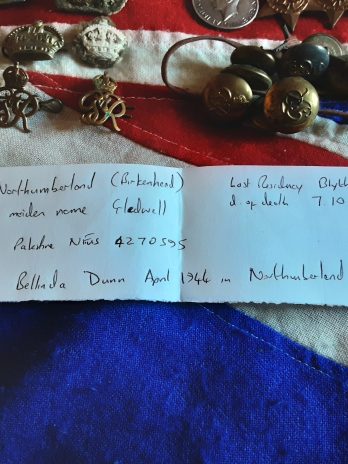 Northumberland (Birkenhead)
maiden name Gledwell
Last Residency Blyth
d. of death 7.10
NFus 4270595
Bellinda Dunn April 1944 in Northumberland